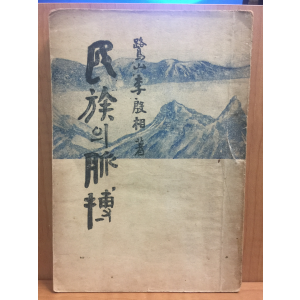 民族의脈搏
鷺山 李殷相 著